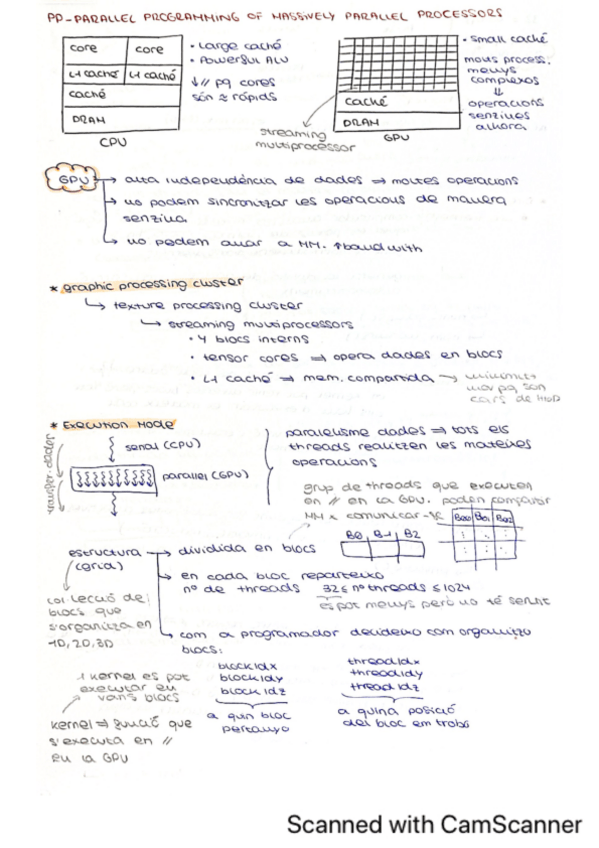 PP-PARALLEL PROGRAMMING OF MASSIVELY PARALLEL PROCESSORS
core core
L1 caché L1 caché
caché
DRAM
CPU
• Large caché
• Powerful ALU
↓// pq cores
són ≈ ràpids
caché
DRAM
GPU
streaming
multiprocessor
• small caché
mous process.
menys
complexos
⇓
operacions
senzilles
alhora
GPU → alta independència de dades ⇒ moltes operacions
→ no podem sincronitzar les operacions de manera
senzilla
→ no podem anar a MM. ↑bandwith
* graphic processing cluster
↳ texture processing cluster
↳ streaming multiprocessors
• 4 blocs interns
• tensor cores ⇒ opera dades en blocs
• L1 caché ⇒ mem. compartida →
pq són
cars de
* Execution Mode
transfer. dades
serial (CPU)
parallel (GPU)
paralelisme dades ⇒ tots els
threads realitzen les mateixes
operacions
grup de threads que executen
en // en la GPU. poden compartir
MM x comunicar-se
B0 B1 B2
B00 B01 B02
estructura → dividida en blocs
(grid)
col·lecció de
blocs que
s'organitza en
1D, 2D, 3D
→ en cada bloc reparteixo
nº de threads 32 ≤ nº threads ≤ 1024
es pot menys però no té sentit
→ com a programador decideixo com organitzo
blocs:
blockIdx
blockIdy
blockIdz
a quin bloc
pertanyo
threadIdx
threadIdy
threadIdz
a quina posició
del bloc em trobo
1 kernel es pot
executar en
varis blocs
kernel ⇒ funció que
s'executa en //
en la GPU
Scanned with CamScanner